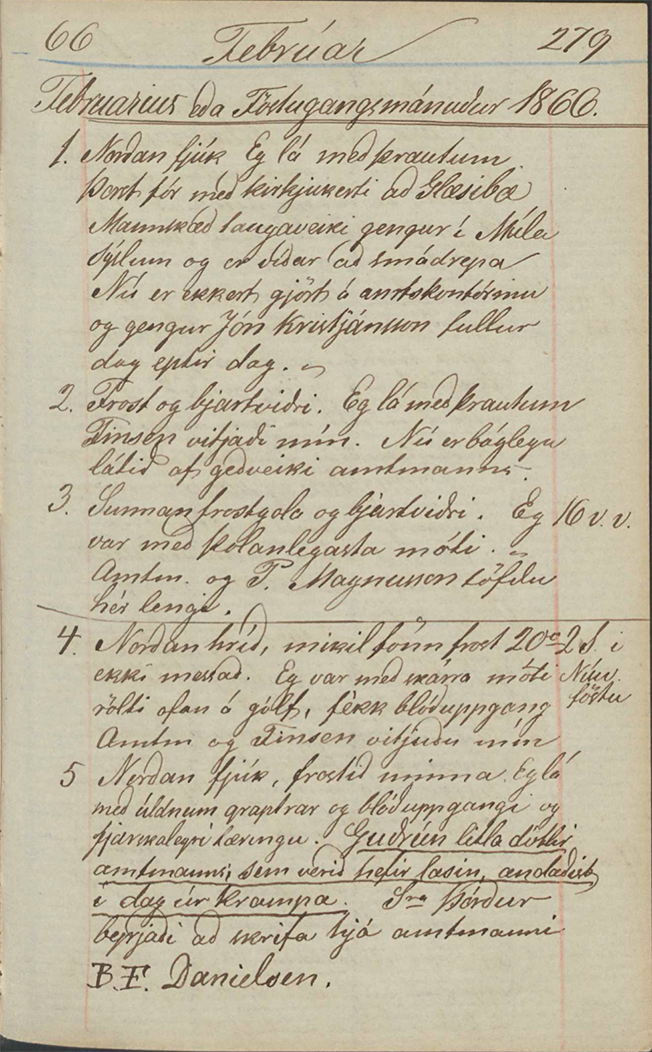 66 Februar 279
Februarius eða Föstugangsmánuður 1866.
1. Norðan fjúk Eg lá með þrautum
Þorst fór með kirkjukerti að Glæsibæ
Mannskæð taugaveiki gengur í Múla
sýslum og er víðar að smádrepa
Nú er ekkert gjört á amtskontórinu
og gengur Jón Kristjánsson fullur
dag eptir dag.
2. Frost og bjartviðri. Eg lá með þrautum
Finsen vitjaði mín. Nú er báglega
látið af geðveiki amtmanns.
3. Sunnan frostgola og bjartviðri. Eg 16 v. v.
var með þolanlegasta móti.
Amtm. og P. Magnusson töfðu
hér lengi.
4. Norðan hríð, mikil fönn frost 20° 2 S. í
ekki messað. Eg var með skárra móti Níuv.
rölti ofan á gólf, fékk blóðuppgang föstu
Amtm og Finsen vitjuðu mín
5 Norðan fjúk, frostið minna. Eg lá
með úldnum graptrar og blóðuppgangi og
fjarskalegri tæringu. Guðrún litla dóttir
amtmanns, sem verið hefir lasin, andaðist
í dag úr krampa. Sra Þórður
byrjaði að skrifa hjá amtmanni
B. E. Danielsen.